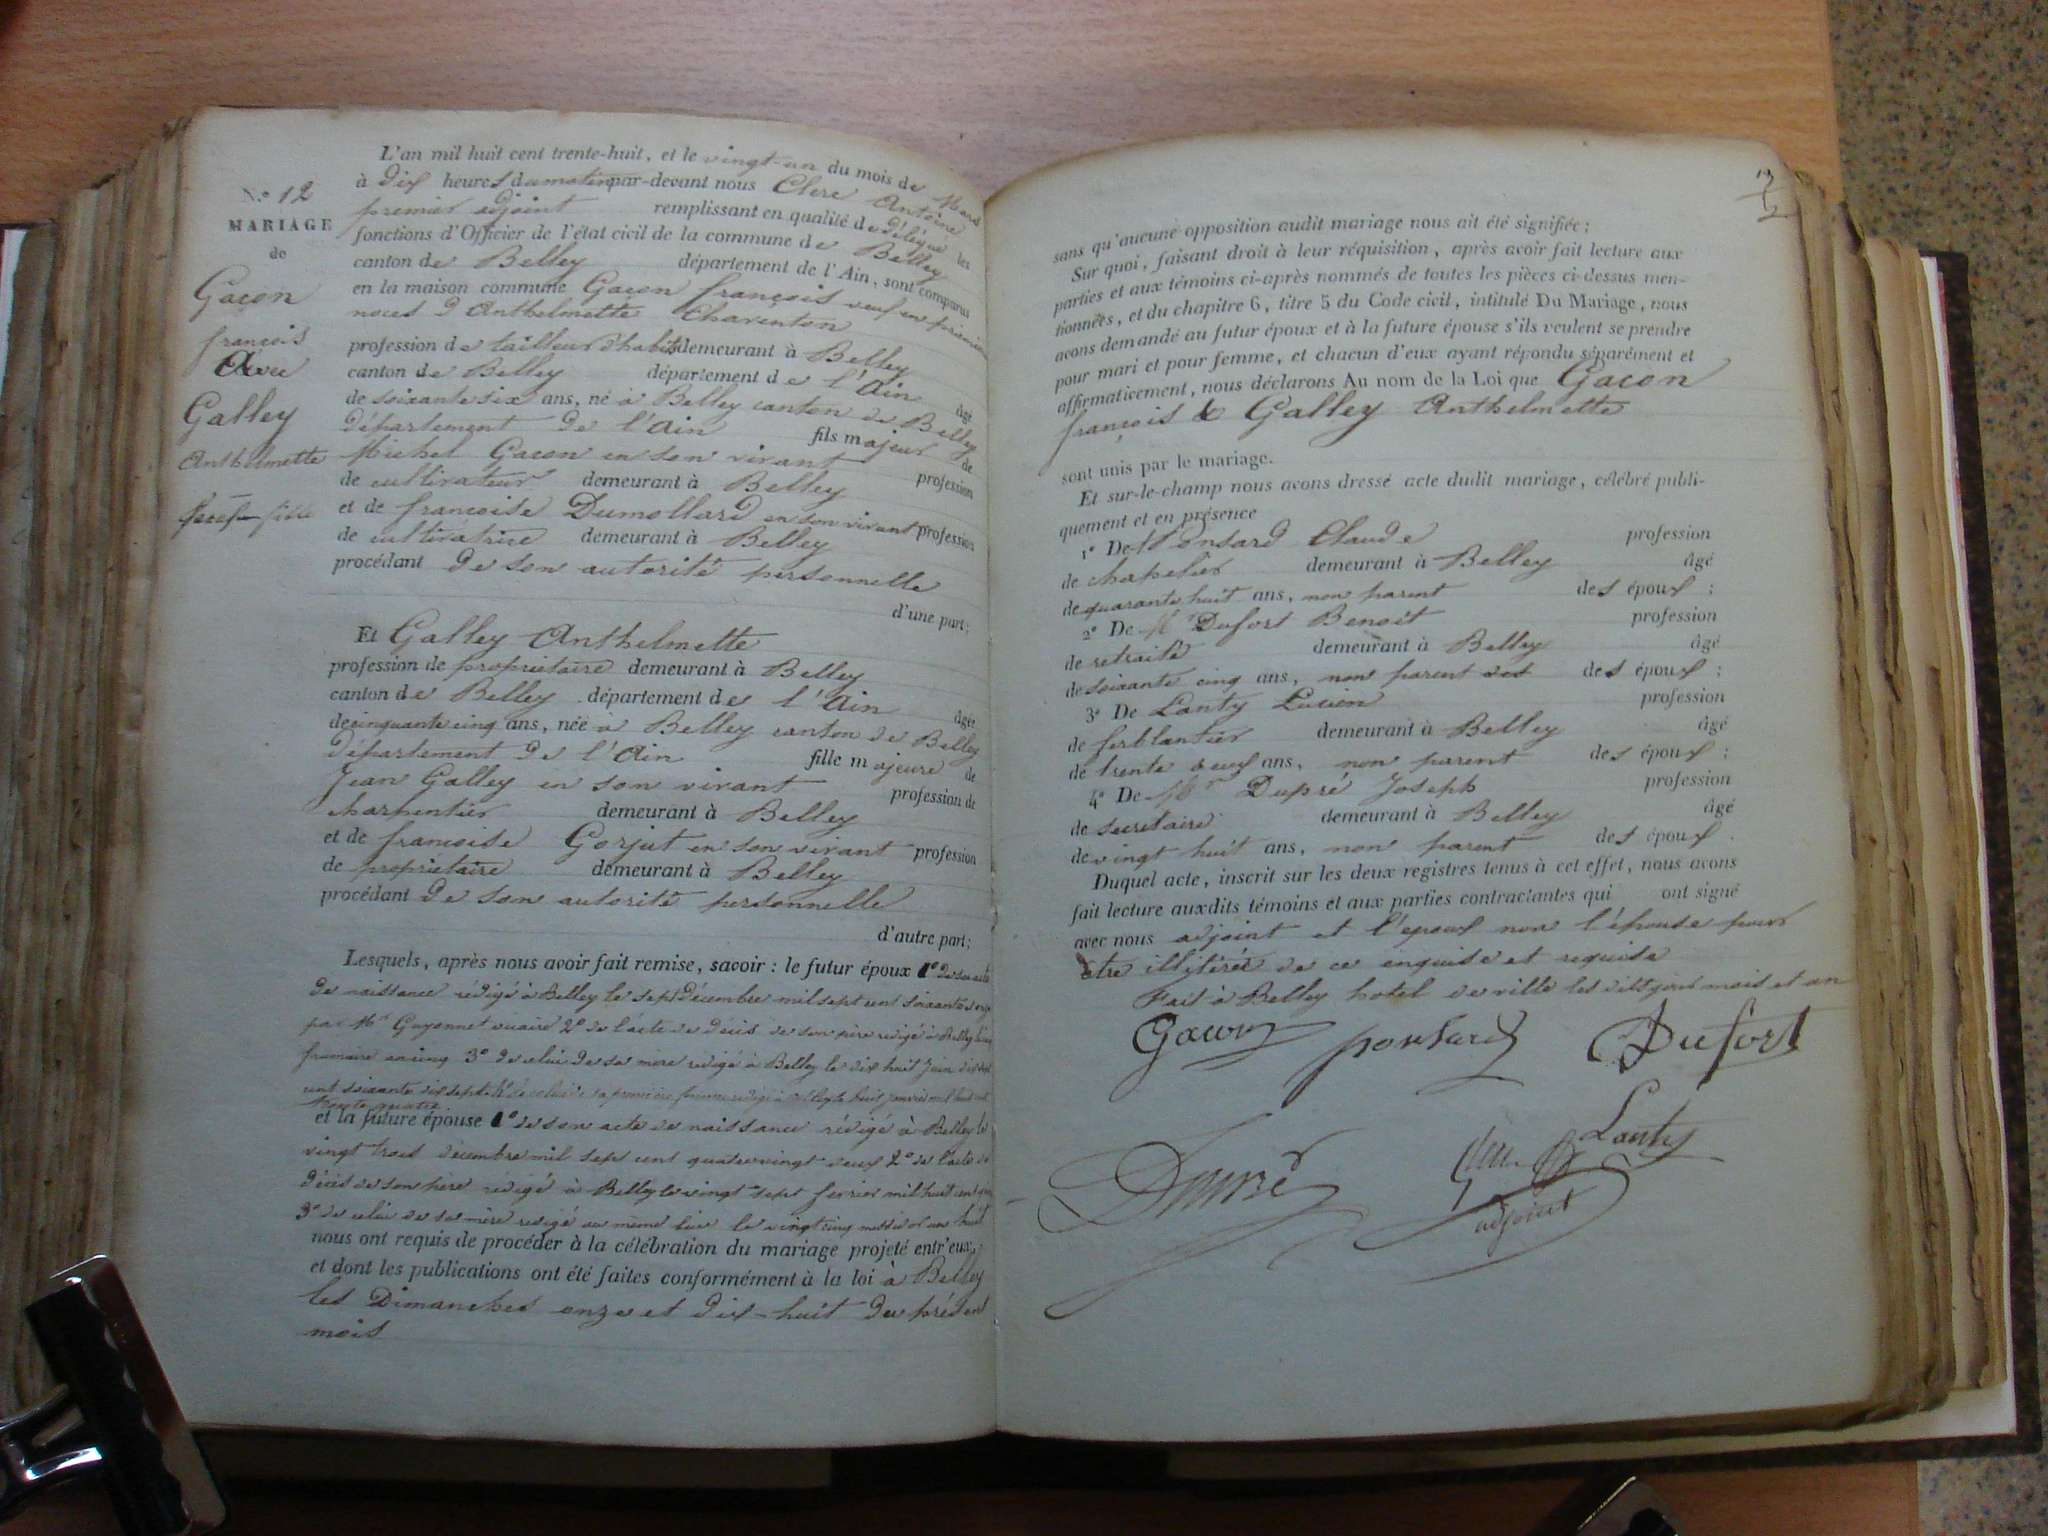 N.º 12
MARIAGE
de
Gacon
françois
Avec
Galley
Anthelmette
fille
L'an mil huit cent trente-huit, et le vingt-un du mois de Mars
à dix heures du matin par-devant nous Clerc Antoine
premier adjoint remplissant en qualité de délégué les
fonctions d'Officier de l'état civil de la commune de Belley
canton de Belley département de l'Ain, sont comparus
en la maison commune Gacon françois veuf en premières
noces d'Anthelmette Charenton
profession de tailleur d'habits demeurant à Belley
canton de Belley département de l'Ain âgé
de soixante six ans, né à Belley canton de Belley
département de l'Ain fils majeur de
Michel Gacon en son vivant profession
de cultivateur demeurant à Belley
et de françoise Dumollard en son vivant profession
de cultivatrice demeurant à Belley
procédant de son autorité personnelle
d'une part;
Et Galley Anthelmette
profession de propriétaire demeurant à Belley
canton de Belley département de l'Ain âgée
de cinquante cinq ans, née à Belley canton de Belley
département de l'Ain fille majeure de
Jean Galley en son vivant profession de
charpentier demeurant à Belley
et de françoise Gorjut en son vivant profession
de propriétaire demeurant à Belley
procédant de son autorité personnelle
d'autre part;
Lesquels, après nous avoir fait remise, savoir : le futur époux 1º de son acte
de naissance rédigé à Belley le sept Décembre mil sept cent soixante onze
par Mr Guyonnet vicaire 2º de l'acte de décès de son père rédigé à Belley
frimaire an cinq 3º de celui de sa mère rédigé à Belley le dix huit Juin
cent soixante dix sept 4º de celui de sa première femme rédigé à Belley le huit janvier mil huit cent
trente quatre
et la future épouse 1º de son acte de naissance rédigé à Belley le
vingt trois décembre mil sept cent quatre vingt deux 2º de l'acte de
décès de son père rédigé à Belley le vingt sept février mil huit cent
3º de celui de sa mère rédigé au même lieu le vingt cinq messidor an huit
nous ont requis de procéder à la célébration du mariage projeté entr'eux,
et dont les publications ont été faites conformément à la loi à Belley
les Dimanches onze et dix-huit du présent
mois
sans qu'aucune opposition audit mariage nous ait été signifiée;
Sur quoi, faisant droit à leur réquisition, après avoir fait lecture aux
parties et aux témoins ci-après nommés de toutes les pièces ci-dessus men-
tionnées, et du chapitre 6, titre 5 du Code civil, intitulé Du Mariage, nous
avons demandé au futur époux et à la future épouse s'ils veulent se prendre
pour mari et pour femme, et chacun d'eux ayant répondu séparément et
affirmativement, nous déclarons Au nom de la Loi que Gacon
françois & Galley Anthelmette
sont unis par le mariage.
Et sur-le-champ nous avons dressé acte dudit mariage, célébré publi-
quement et en présence
1º De Ponsard Claude profession
de chapelier demeurant à Belley âgé
de quarante huit ans, non parent des époux;
2º De Mr Dufort Benoit profession
de retraité demeurant à Belley âgé
de soixante cinq ans, non parent des époux;
3º De Lanty Lucien profession
de ferblantier demeurant à Belley âgé
de trente deux ans, non parent des époux;
4º De Mr Dupré Joseph profession
de secretaire demeurant à Belley âgé
de vingt huit ans, non parent des époux.
Duquel acte, inscrit sur les deux registres tenus à cet effet, nous avons
fait lecture auxdits témoins et aux parties contractantes qui ont signé
avec nous adjoint et l'époux non l'épouse pour
être illitérée de ce enquise et requise
Fait à Belley hotel de ville les dits jour mois et an
Gacon ponsard Dufort
Lanty
Dupré
adjoint